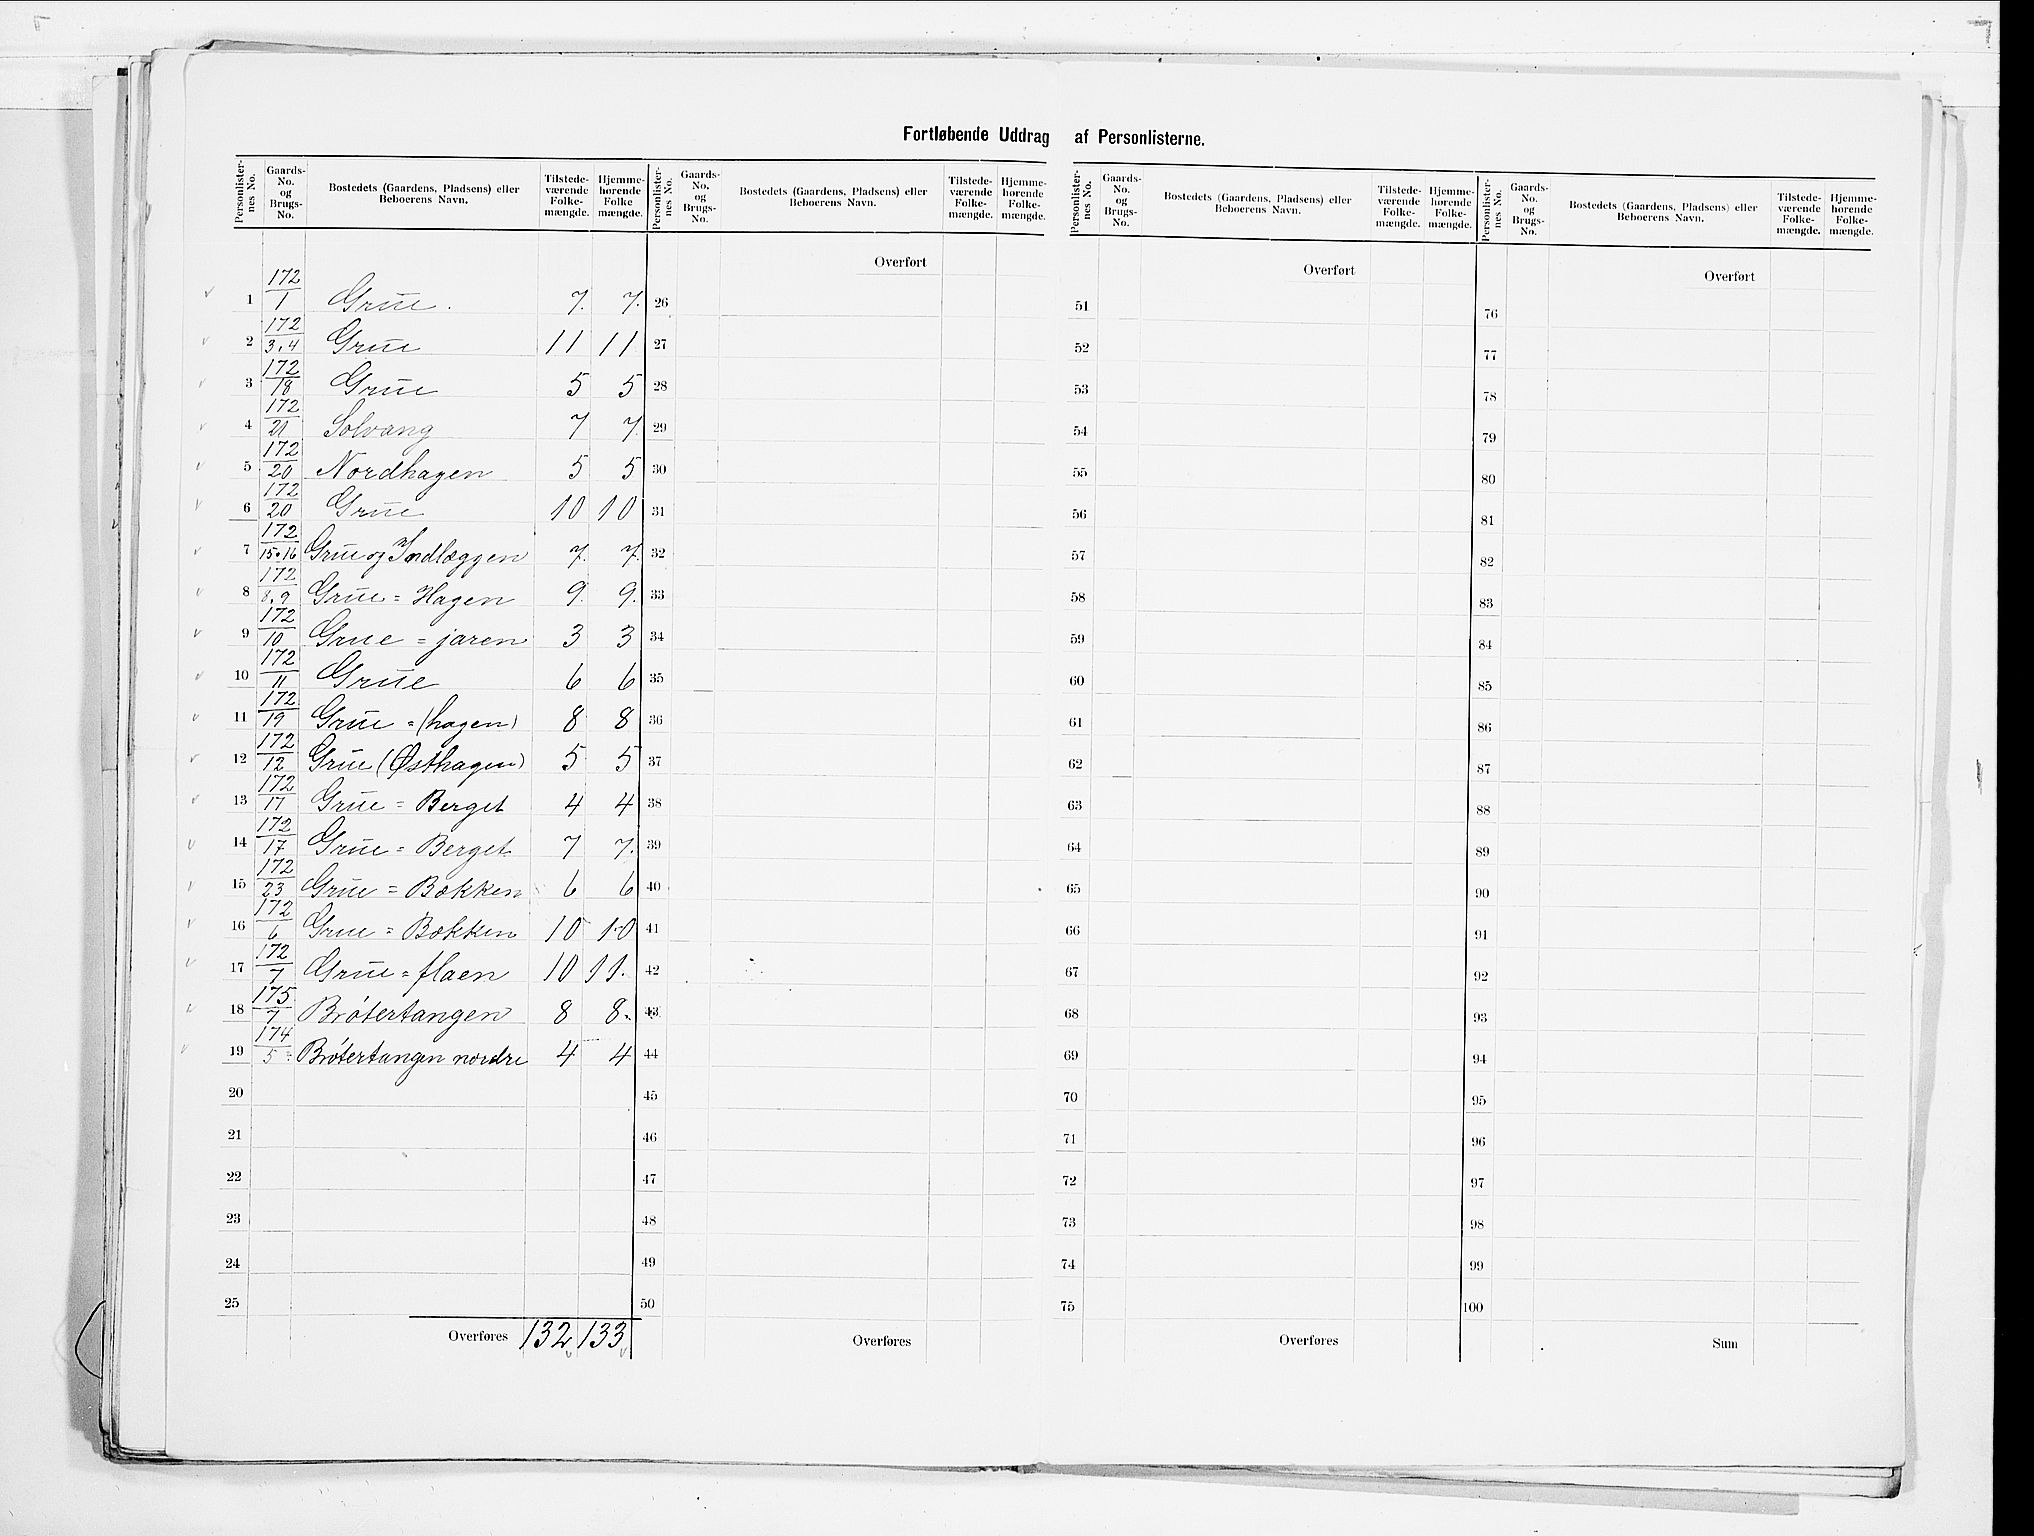 Fortløbende Uddrag af Personlisterne.
Personlister-nes No. | Gaards-No. og Brugs-No. | Bostedets (Gaardens, Pladsens) eller Beboerens Navn. | Tilstede-værende Folke-mængde. | Hjemme-hørende Folke mængde.
1 172/1 Grue. 7. 7.
2 172/3,4 Grue 11 11
3 172/18 Grue 5 5
4 172/21 Solvang 7 7
5 172/20 Nordhagen 5 5
6 172/20 Grue 10 10
7 172/15.16 Grue og Indlæggen 7. 7.
8 172/8,9 Grue = Hagen 9. 9.
9 172/10 Grue = jaren 3 3
10 172/11 Grue 6 6
11 172/19 Grue = (hagen) 8 8
12 172/12 Grue (Østhagen) 5 5
13 172/17 Grue = Berget 4 4
14 172/17 Grue = Berget 7 7.
15 172/23 Grue = Bækken 6 6
16 172/6 Grue = Bækken 10 10
17 172/7 Grue = flaen 10 11.
18 175/7 Brøtertangen 8 8.
19 174/5 Brøtertangen nordre 4 4
20
21
22
23
24
25
Overføres 132 133
Personlister-nes No. | Gaards-No. og Brugs-No. | Bostedets (Gaardens, Pladsens) eller Beboerens Navn. | Tilstede-værende Folke-mængde. | Hjemme-hørende Folke-mængde.
Overført
26
27
28
29
30
31
32
33
34
35
36
37
38
39
40
41
42
43
44
45
46
47
48
49
50
Overføres
Personlister-nes No. | Gaards-No. og Brugs-No. | Bostedets (Gaardens, Pladsens) eller Beboerens Navn. | Tilstede-værende Folke-mængde. | Hjemme-hørende Folke-mængde.
Overført
51
52
53
54
55
56
57
58
59
60
61
62
63
64
65
66
67
68
69
70
71
72
73
74
75
Overføres
Personlister-nes No. | Gaards-No. og Brugs-No. | Bostedets (Gaardens, Pladsens) eller Beboerens Navn. | Tilstede-værende Folke-mængde. | Hjemme-hørende Folke-mængde.
Overført
76
77
78
79
80
81
82
83
84
85
86
87
88
89
90
91
92
93
94
95
96
97
98
99
100
Sum